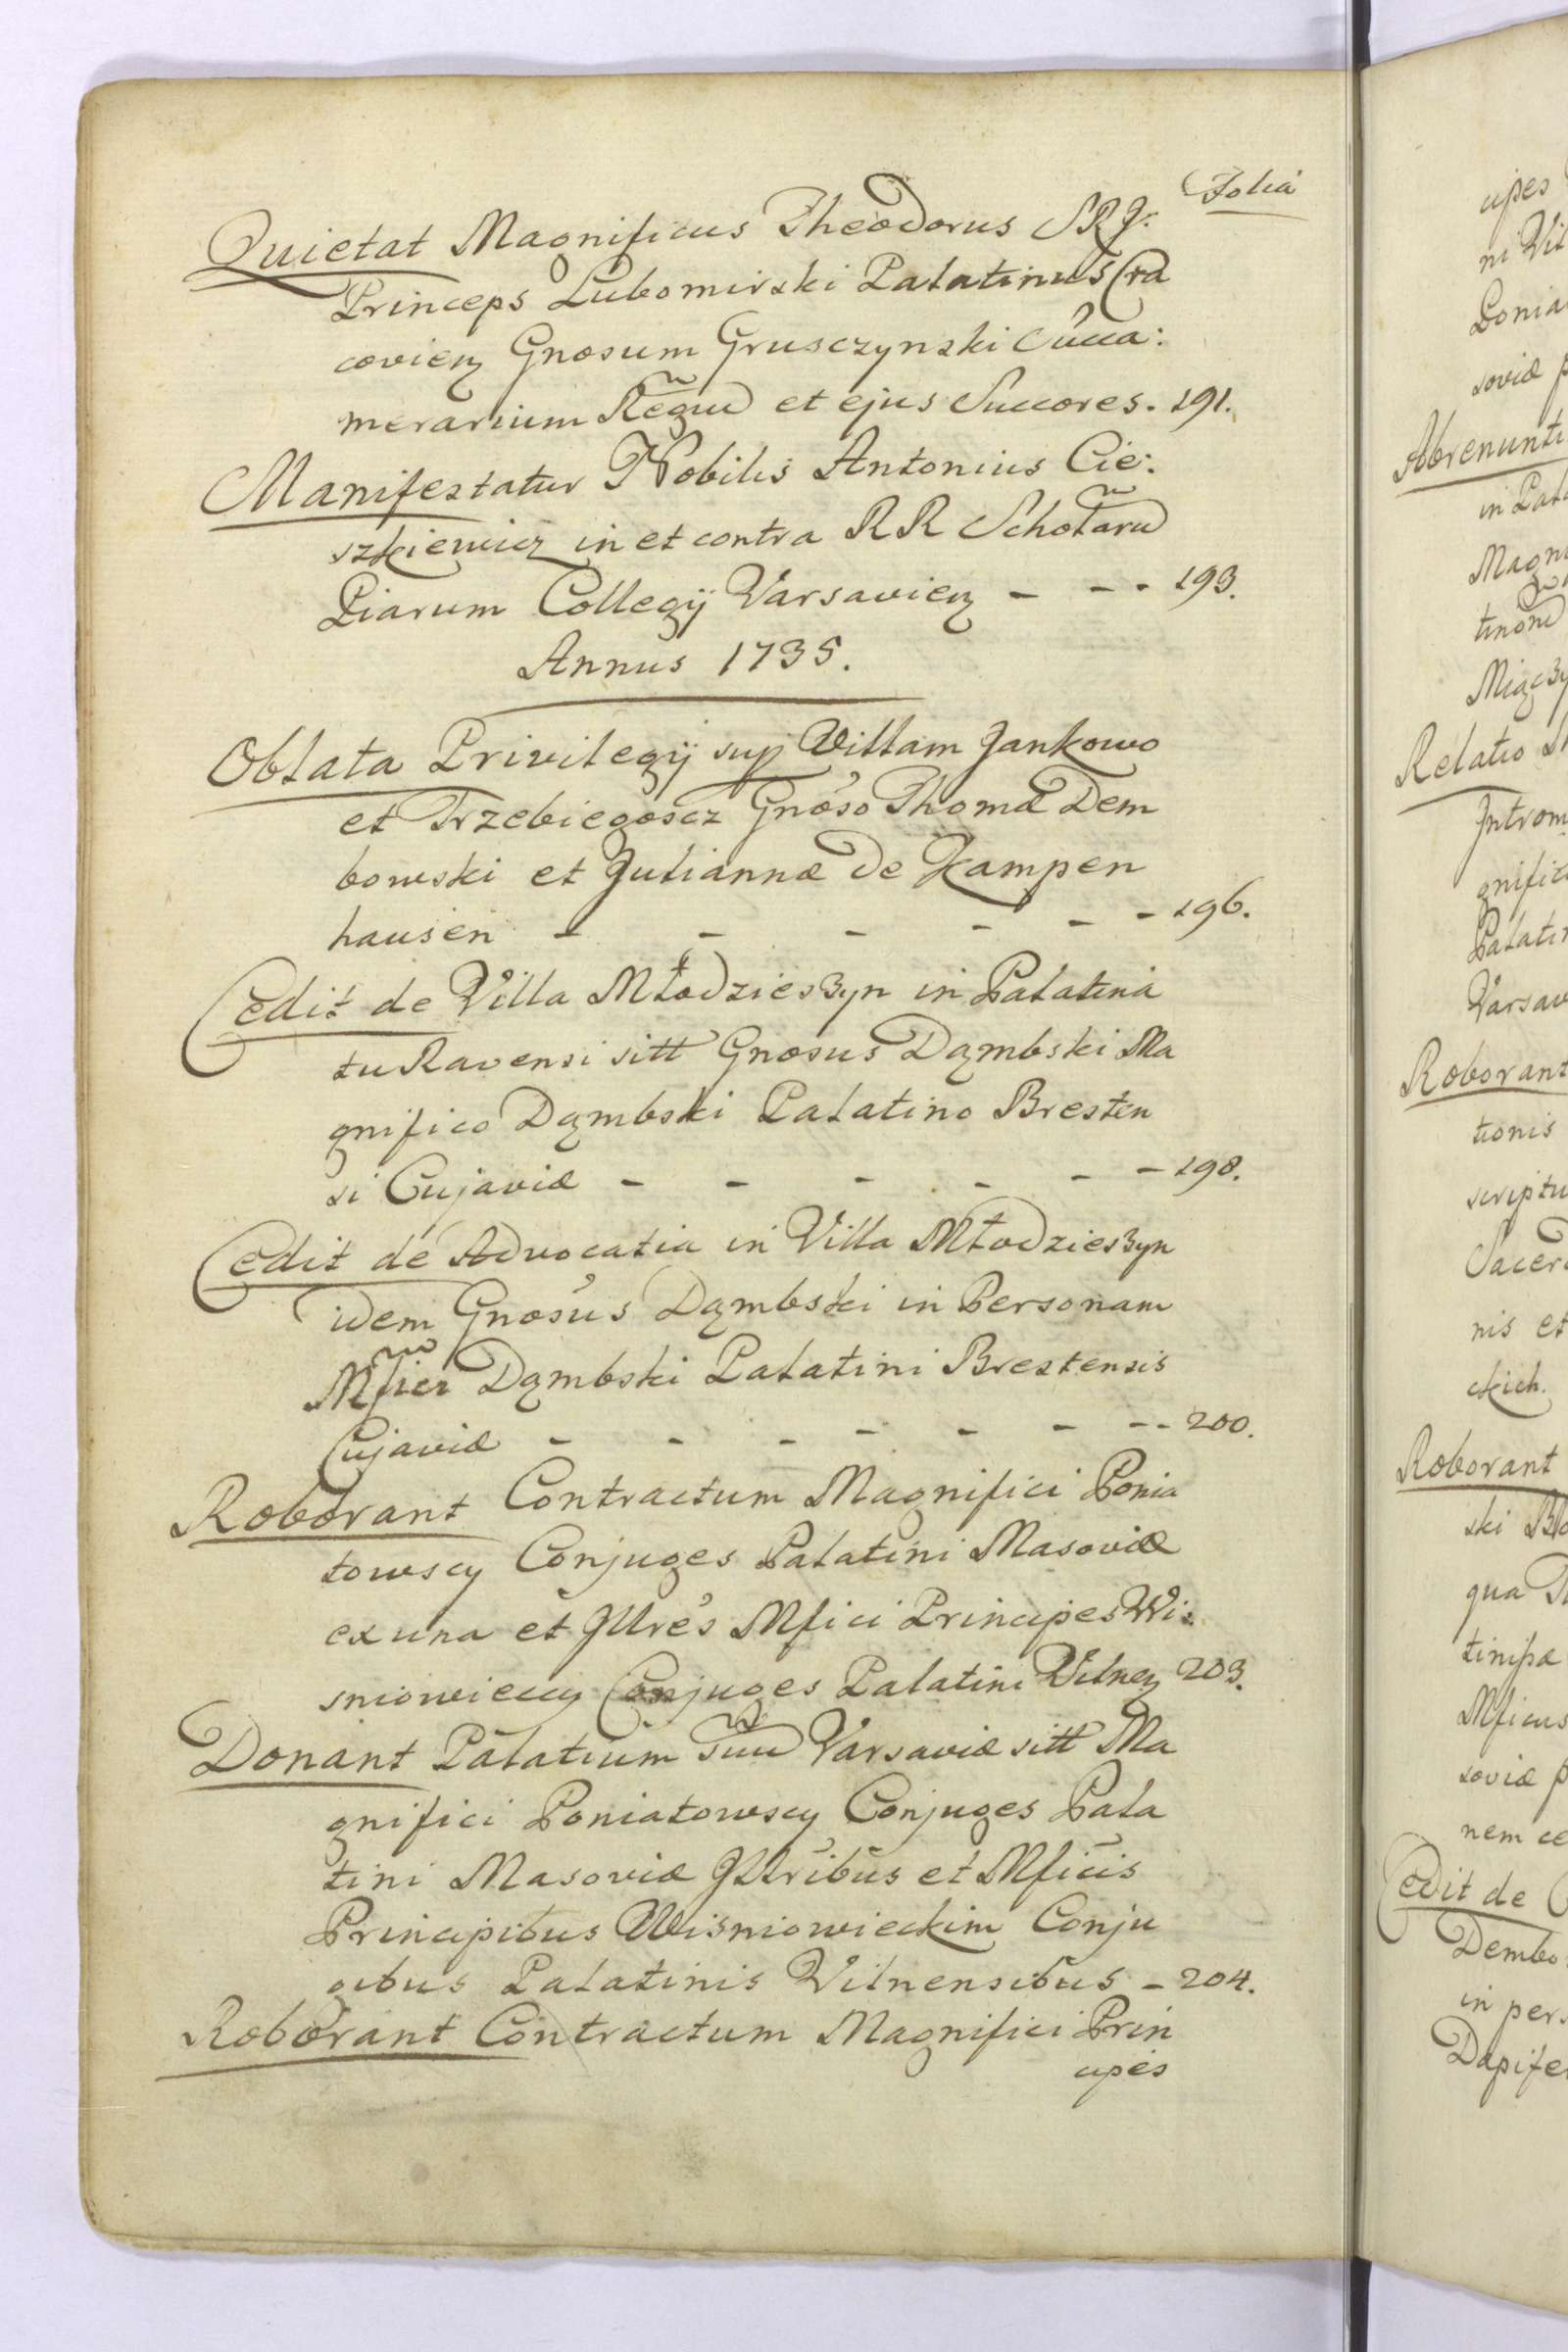 Folia
Quietat Magnificus Theodorus SRJ.
Princeps Lubomirski Palatinus Cra
covien Gnosum Grusczynski Succa:
merarium Regnũ et ejus Succores. 191.
Manifestatur Nobilis Antonius Cie:
szkiewicz in et contra RR Scholarũ
Piarum Collegij Varsavien - - - 193.
Annus 1735.
Oblata Privilegij sup Villam Jankowo
et Trzebiegoscz Gnoso Thomæ Dem
bowski et Juliannæ de Kampen
hausen - - - - - - 196.
Cedit de Villa Młodzieszyn in Palatina
tu Ravensi sitt Gnosus Dąmbski Ma
gnifico Dąmbski Palatino Bresten
si Cujaviæ - - - - - - 198.
Cedit de Advocatia in Villa Młodzieszyn
idem Gnosus Dąmbski in Personam
Mfici Dąmbski Palatini Brestensis
Cujaviæ - - - - - - - - 200.
Roborant Contractum Magnifici Ponia
towscy Conjuges Palatini Masoviæ
ex una et Jllres Mfici Principes Wi:
sniowieccy Conjuges Palatini Vilnen 203.
Donant Palatium suũ Varsaviæ sitt Ma
gnifici Poniatowscy Conjuges Pala
tini Masoviæ Jllribus et Mficis
Principibus Wisniowieckim Conju
gibus Palatinis Vilnensibus - 204.
Roborant Contractum Magnifici Prin
cipes
cipes
ni Vil
Ponia
soviæ p
Abrenunti
in Pala
Magni
tinoru
Miączy
Relatio
Introm
gnifici
Palatin
Varsav
Roborant
tionis
scriptu
Sacer
nis et
ckich.
Roborant
ski
qua
Mficus
soviæ p
nem ce
Cedit de
Dembo
in per
Dapife